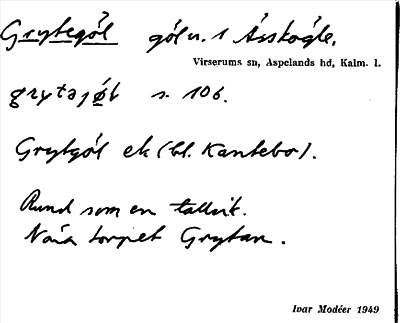 Grytegöl göl n. t Ässkögle.
Virserums sn, Aspelands hd, Kalm. l.
grytajøl s. 106.
Grytgöl ek (bl. Kantebo).
Rund som en tallrik.
Nära torpet Grytan.
Ivar Modéer 1949